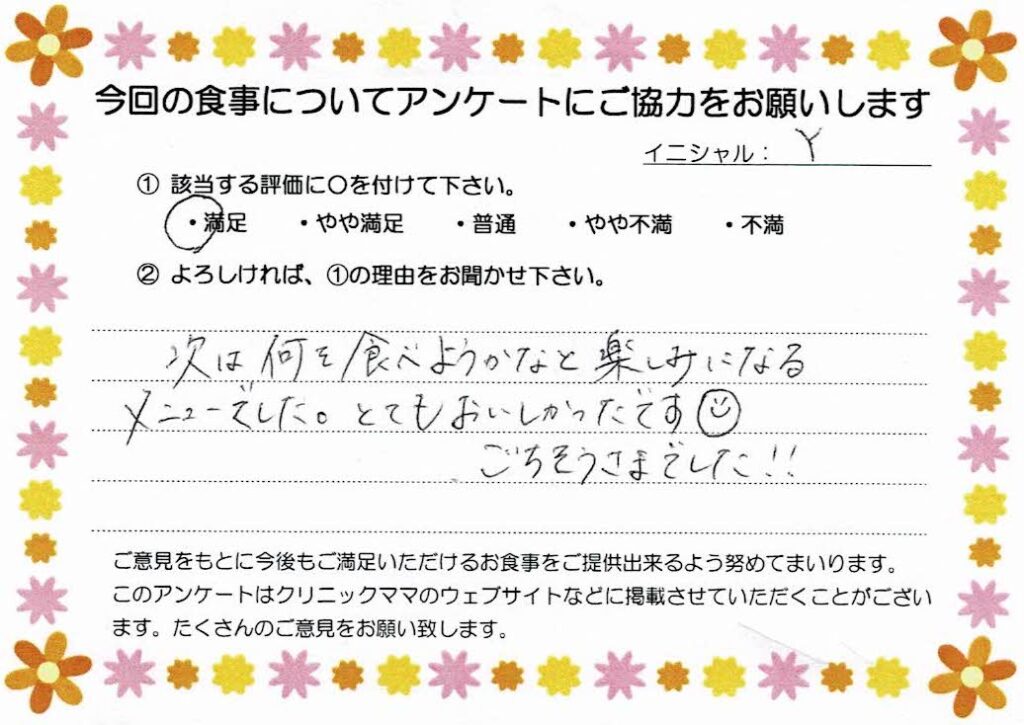 今回の食事についてアンケートにご協力をお願いします
イニシャル： Y
① 該当する評価に〇を付けて下さい。
・満足 ・やや満足 ・普通 ・やや不満 ・不満
② よろしければ、①の理由をお聞かせ下さい。
次は何を食べようかなと楽しみになる
メニューでした。とてもおいしかったです☺
ごちそうさまでした!!
ご意見をもとに今後もご満足いただけるお食事をご提供出来るよう努めてまいります。
このアンケートはクリニックママのウェブサイトなどに掲載させていただくことがござい
ます。たくさんのご意見をお願い致します。